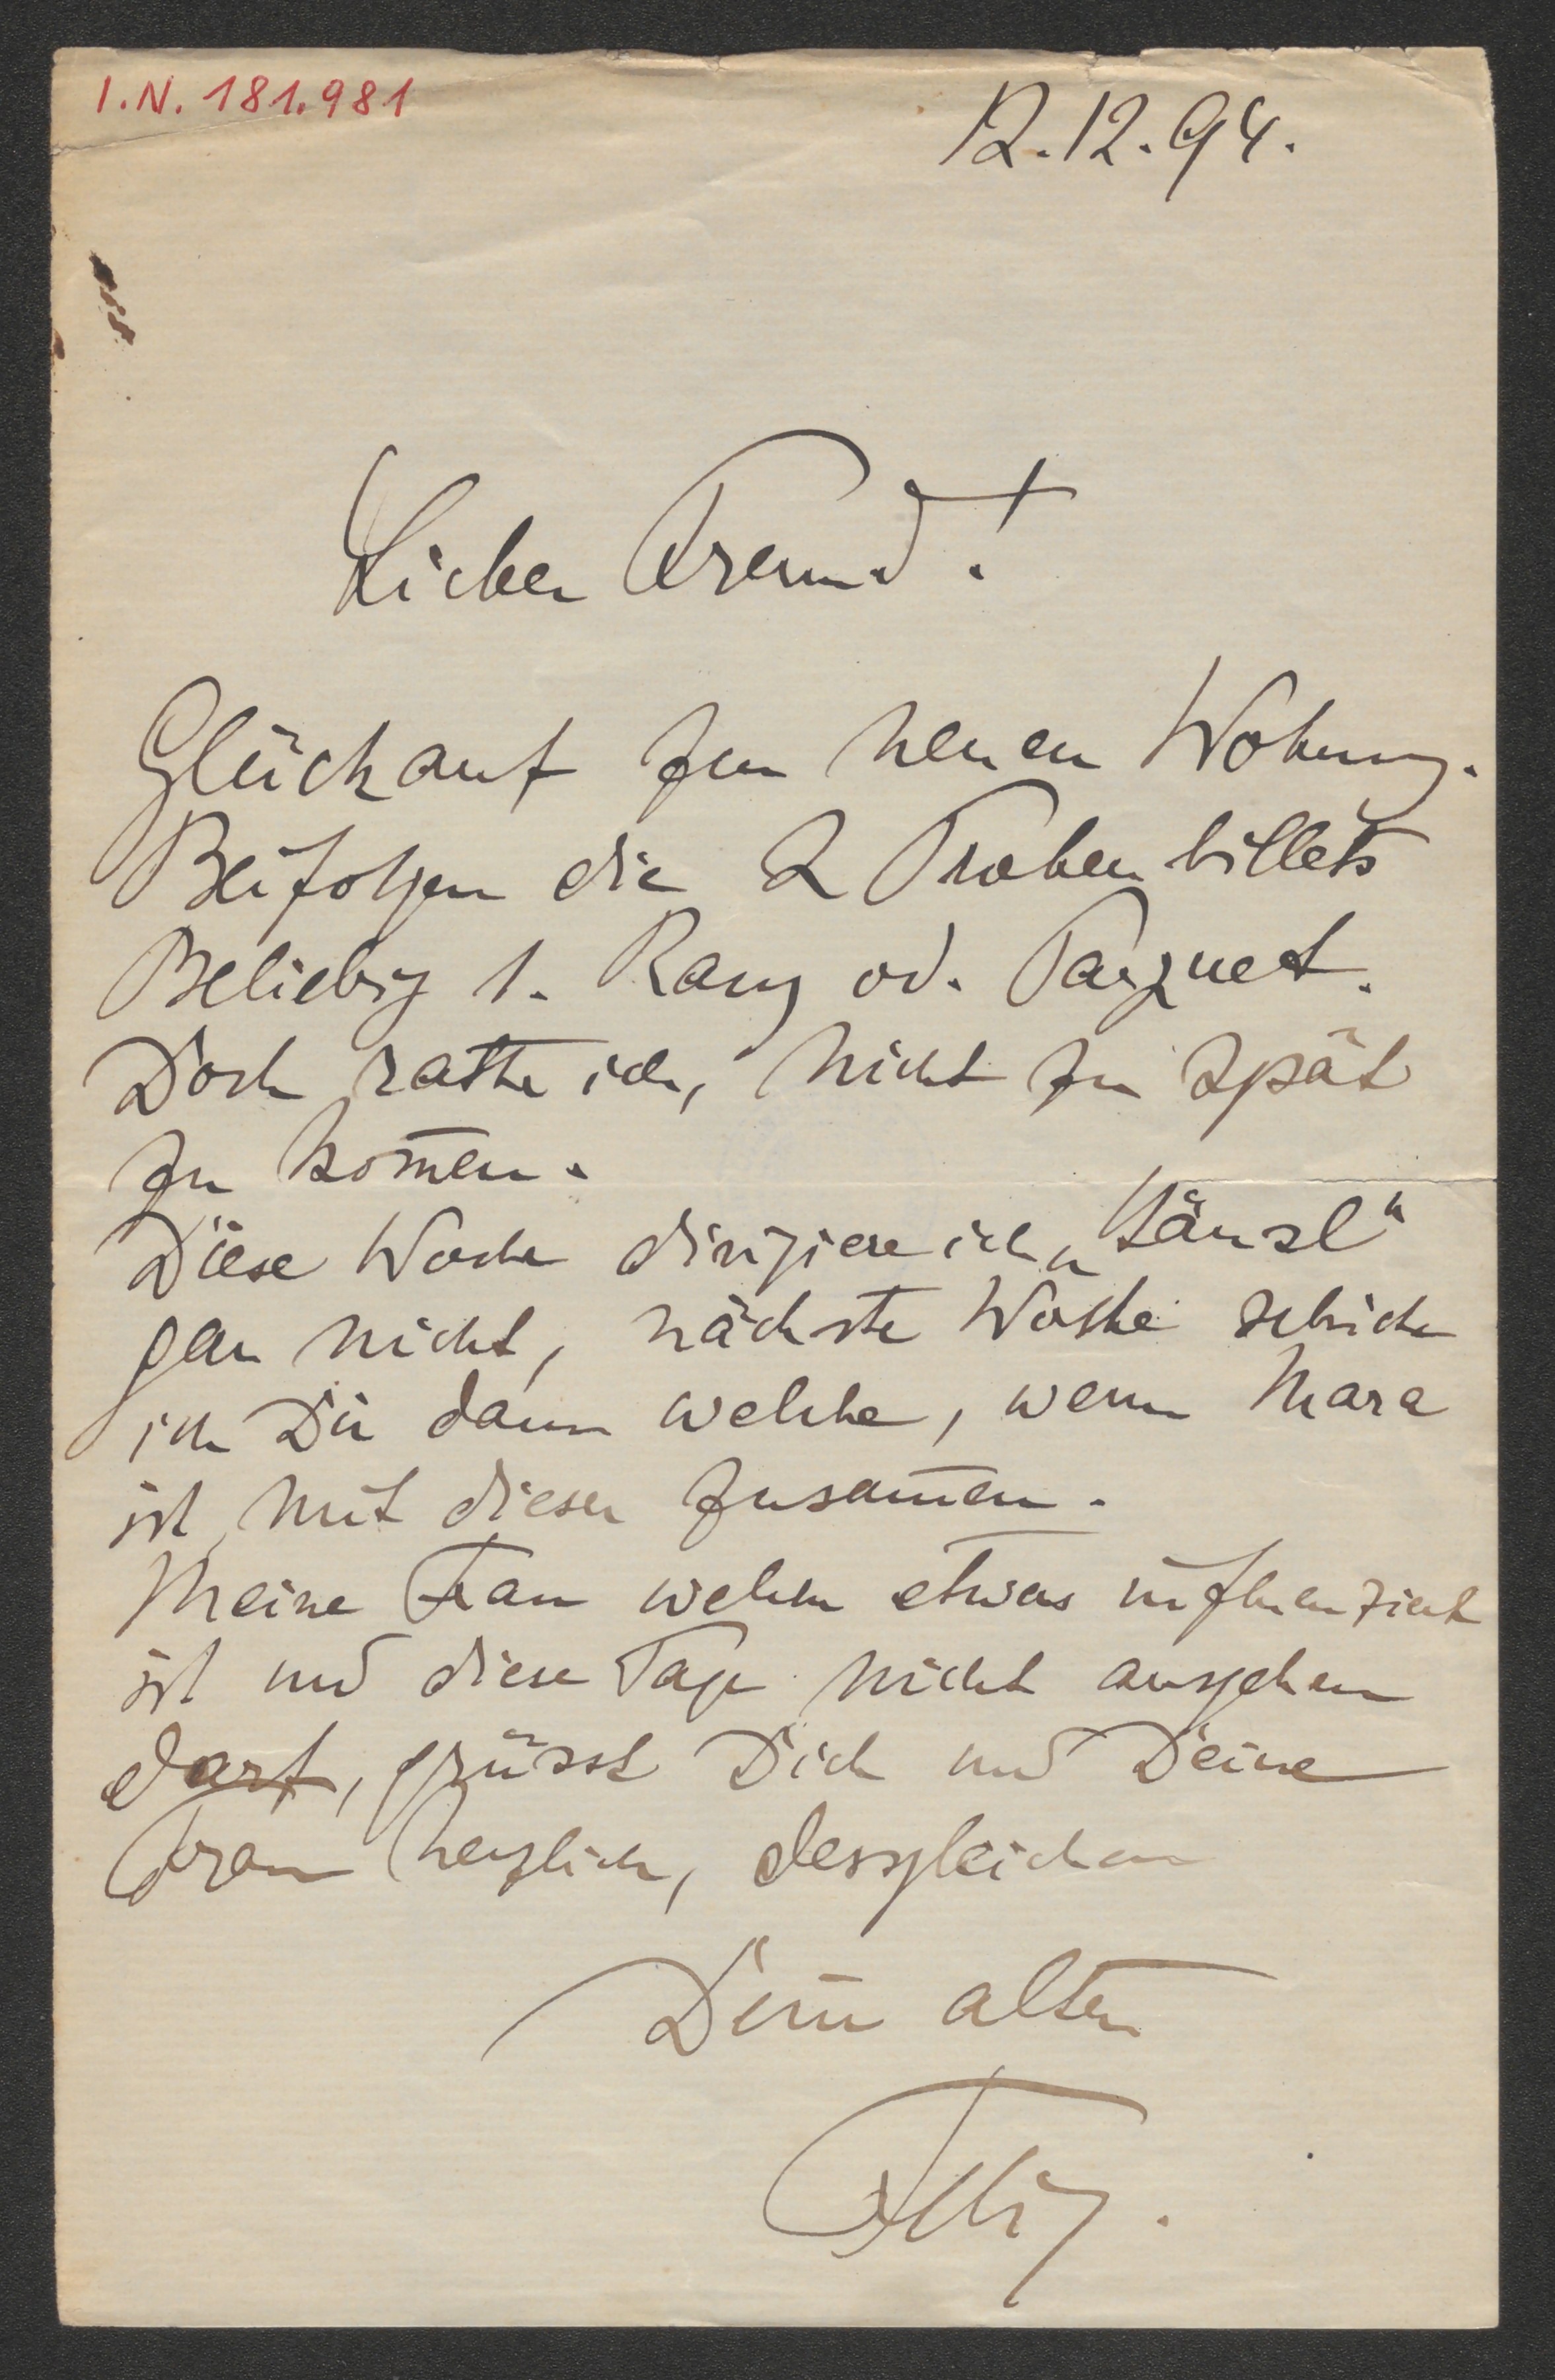 I.N. 181.981
12.12.94.
Lieber Freund!
Glückauf zur neuen Wohnung.
Beifolgen die 2 Probenbillets
Beliebig 1. Rang od. Parquet.
Doch rathe ich, nicht zu spät
zu kom̄en.
Diese Woche dirigiere ich „Hänsl“
gar nicht, nächste Woche schicke
ich Dir dann welche, wenn Mara
ist mit dieser zusam̄en.
Meine Frau welche etwas influenzirt
ist und diese Tage nicht ausgehen
darf, grüsst Dich und Deine
Frau herzlich, desgleichen
Dein alter